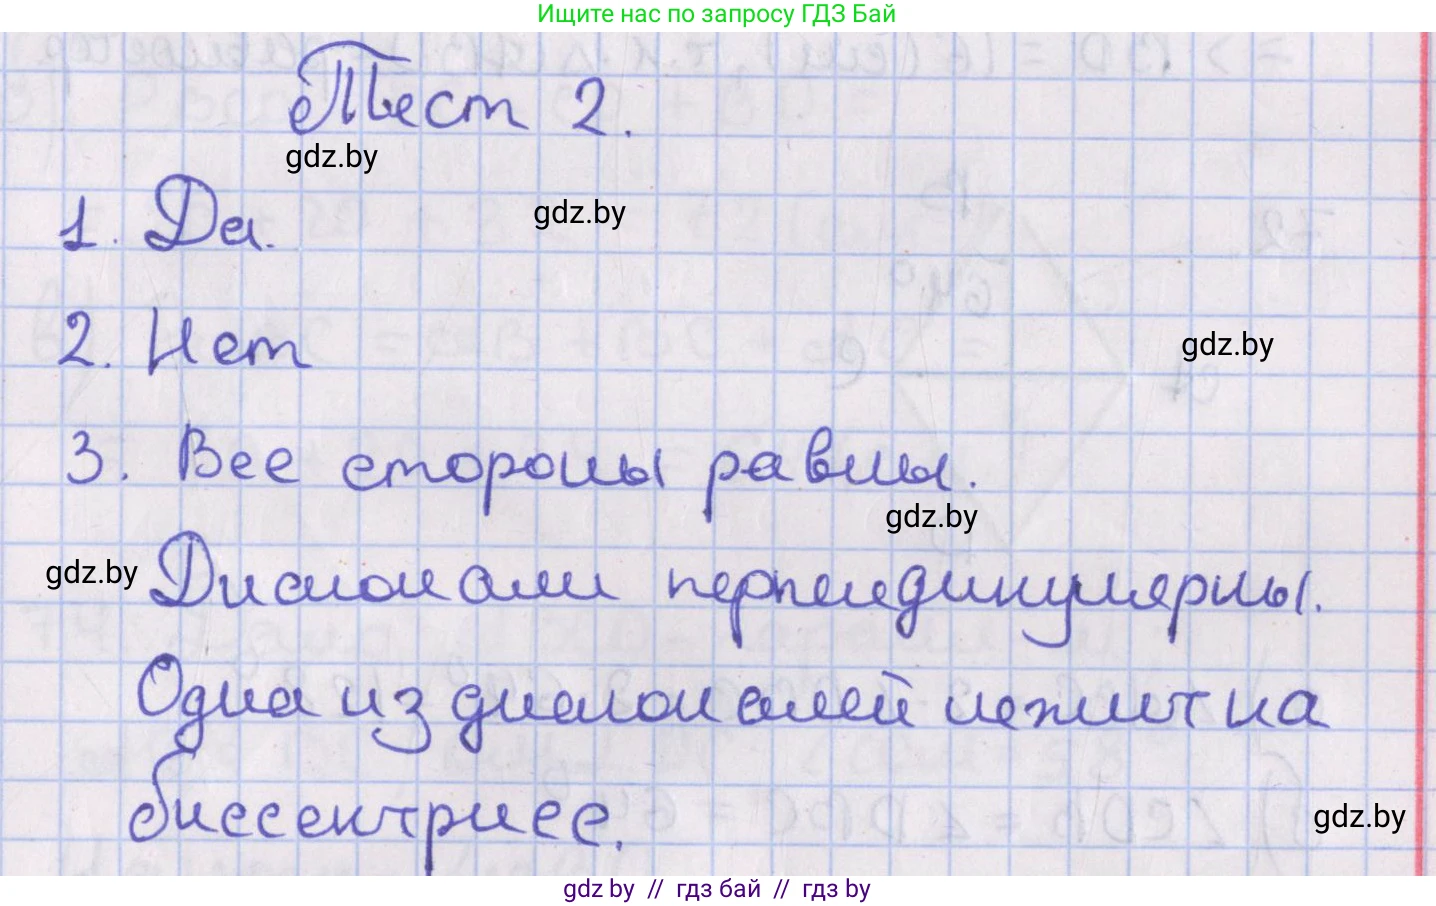 Ищите нас по запросу ГДЗ Бай
Тест 2.
gdz.by
1. Да.
gdz.by
2. Нет
gdz.by
3. Все стороны равны.
gdz.by
gdz.by
Диагонали перпендикулярны.
Одна из диагоналей лежит на
биссектрисе.
gdz.by
gdz by // гдз бай // гдз by